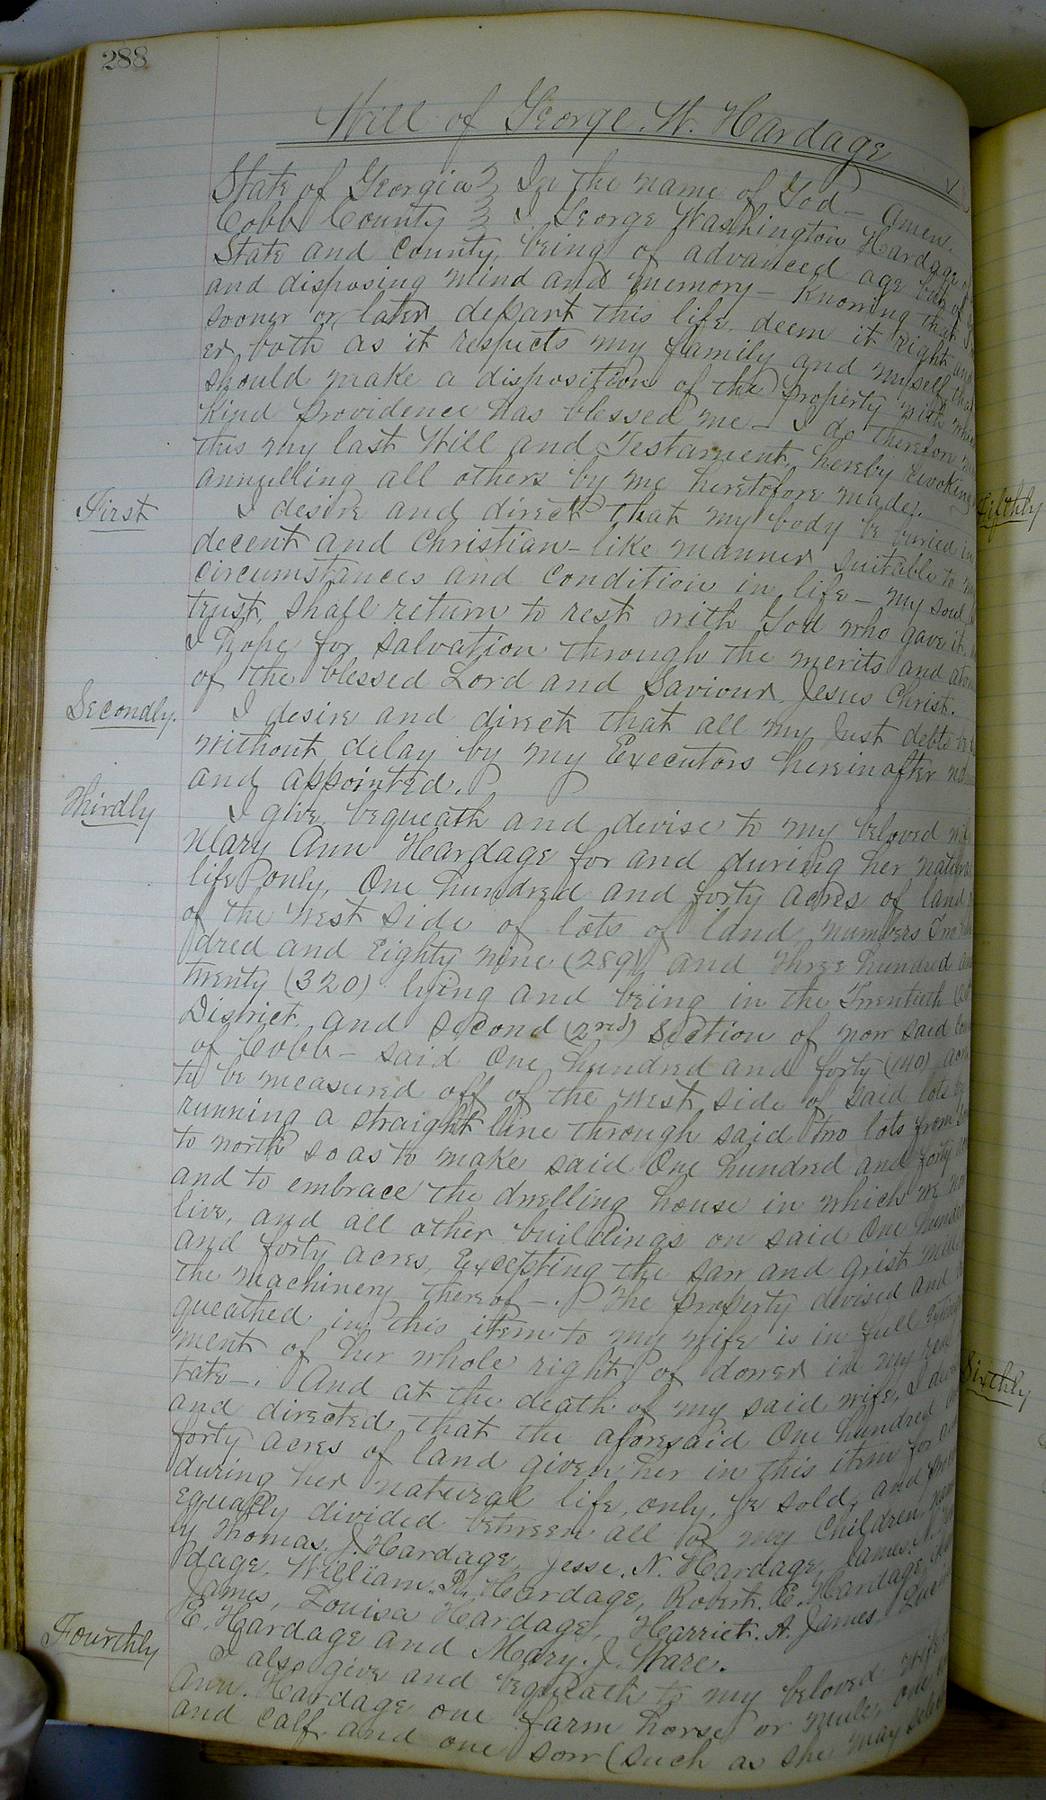 288
Will of George. W. Hardage
State of Georgia } In the name of God - Amen.
Cobb County } I George Washington Hardage of
State and County, being of advanced age but of
and disposing mind and memory - Knowing that I
sooner or later depart this life, deem it right and
er both as it respects my family and myself that
should make a disposition of the property with which
kind providence has blessed me - I do therefore
this my last Will and Testament, hereby revoking
annulling all others by me heretofore made.
First
I desire and direct that my body be buried in
decent and Christian-like manner suitable to my
circumstances and condition in life - my soul I
trust, shall return to rest with God who gave it,
I hope for salvation through the merits and
of the blessed Lord and Saviour Jesus Christ.
Secondly.
I desire and direct that all my Just debts
without delay by my Executors hereinafter
and appointed.
Thirdly
I give, bequeath and devise to my beloved wife
Mary Ann Hardage for and during her natural
life only, One hundred and forty acres of land
of the West side of lots of land numbers Two
dred and Eighty nine (289) and Three hundred and
Twenty (320) lying and being in the Twentieth (20
District, and Second (2nd) Section of now said
of Cobb - said One hundred and forty (140) acres
to be measured off of the West side of said lots by
running a straight line through said two lots from
to north so as to make said One hundred and forty
and to embrace the dwelling house in which we now
live, and all other buildings on said One hundred
and forty acres, Excepting the saw and grist mill
the machinery thereof -. The property devised and
queathed in this item to my wife is in full
ment of her whole right of dower in my real
tate -. And at the death of my said wife, I
and directed that the aforesaid One hundred
forty acres of land given her in this item for
during her natural life, only, be sold, and
equally divided between all of my Children,
ly Thomas. J. Hardage, Jesse. N. Hardage, James. N.
dage, William. R. Hardage, Robert. E. Hardage,
James, Louisa Hardage, Harriet. A. James,
E. Hardage and Mary. J. Ware.
Fourthly
I also give and bequeath to my beloved wife
Ann. Hardage one farm horse or mule, one
and calf and one sow (such as she may select
Fifthly
Sixthly